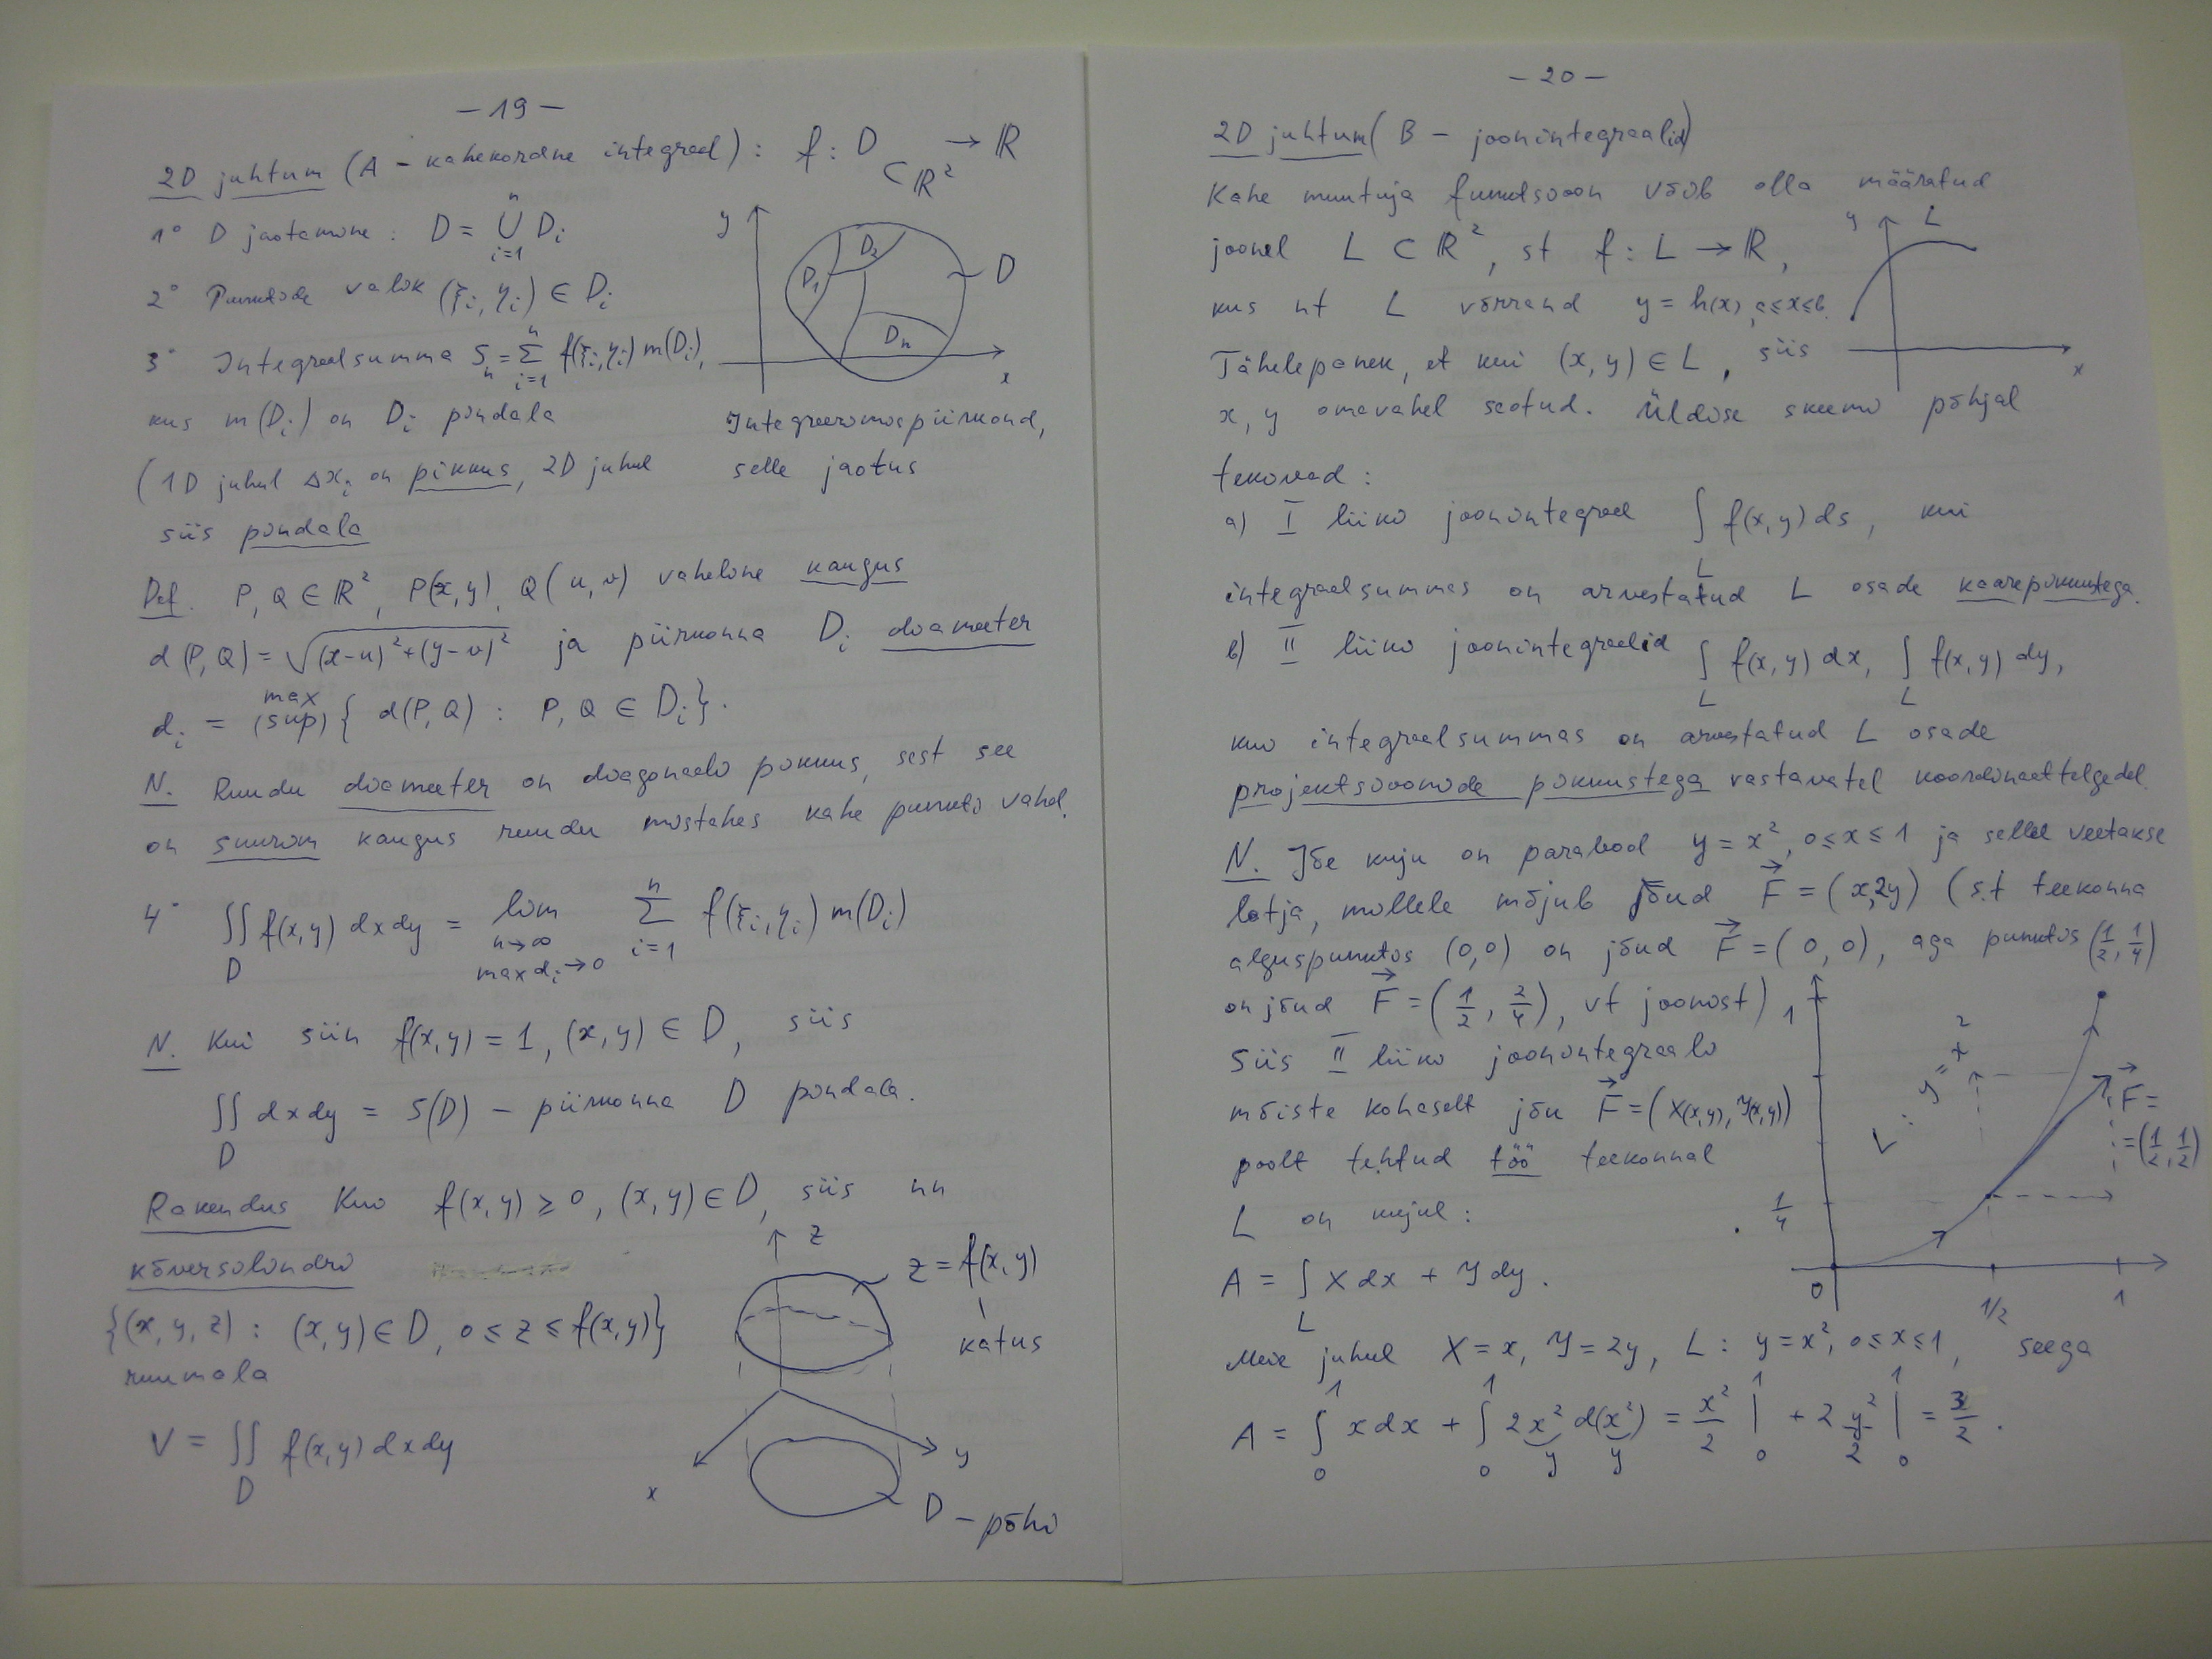 — 19 —
2D juhtum (A – kahekordne integraal): f: D ⊂ ℝ² → ℝ
1° D jaotamine: D = ⋃_{i=1}^{n} D_i
2° Punktide valik (ξ_i, η_i) ∈ D_i
3° Integraalsumma S_n = Σ_{i=1}^{n} f(ξ_i, η_i) m(D_i),
kus m(D_i) on D_i pindala
(1D juhul Δx_i on pikkus, 2D juhul
siis pindala
y
D_1
D_2
D_n
D
x
Integreerimispiirkond,
selle jaotus
Def. P, Q ∈ ℝ², P(x, y), Q(u, v) vaheline kaugus
d(P, Q) = √((x-u)² + (y-v)²) ja piirkonna D_i diameeter
d_i = max (sup) { d(P, Q) : P, Q ∈ D_i }.
N. Ruudu diameeter on diagonaali pikkus, sest see
on suurim kaugus ruudu mistahes kahe punkti vahel.
4° ∬_D f(x, y) dx dy = lim_{n→∞, max d_i→0} Σ_{i=1}^{n} f(ξ_i, η_i) m(D_i)
N. Kui siin f(x, y) = 1, (x, y) ∈ D, siis
∬_D dx dy = S(D) – piirkonna D pindala.
Rakendus Kui f(x, y) ≥ 0, (x, y) ∈ D, siis nn
kõversilindri
{(x, y, z) : (x, y) ∈ D, 0 ≤ z ≤ f(x, y)}
ruumala
V = ∬_D f(x, y) dx dy
z
z = f(x, y)
katus
y
x
D – põhi
— 20 —
2D juhtum (B – joonintegraalid)
Kahe muutuja funktsioon võib olla määratud
joonel L ⊂ ℝ², st f: L → ℝ,
kus nt L võrrand y = h(x), a ≤ x ≤ b.
y
L
x
Tähelepanek, et kui (x, y) ∈ L, siis
x, y omavahel seotud. Üldise skeemi põhjal
tekivad:
a) I liiki joonintegraal ∫_L f(x, y) ds, kui
integraalsummas on arvestatud L osade kaarepikkustega.
b) II liiki joonintegraalid ∫_L f(x, y) dx, ∫_L f(x, y) dy,
kui integraalsummas on arvestatud L osade
projektsioonide pikkustega vastavatel koordinaattelgedel.
N. Jõe kuju on parabool y = x², 0 ≤ x ≤ 1 ja sellel veetakse
lotja, millele mõjub jõud F⃗ = (x, 2y) (s.t teekonna
alguspunktis (0, 0) on jõud F⃗ = (0, 0), aga punktis (1/2, 1/4)
on jõud F⃗ = (1/2, 2/4), vt joonist),
siis II liiki joonintegraali
mõiste kohaselt jõu F⃗ = (X(x, y), Y(x, y))
poolt tehtud töö teekonnal
L on kujul:
A = ∫_L X dx + Y dy.
1
L: y = x²
F⃗ =
= (1/2, 1/2)
1/4
0
1/2
1
Meie juhul X = x, Y = 2y, L: y = x², 0 ≤ x ≤ 1, seega
A = ∫_0^1 x dx + ∫_0^1 2 x² d(x²) = x²/2 |_0^1 + 2 y²/2 |_0^1 = 3/2.
y y